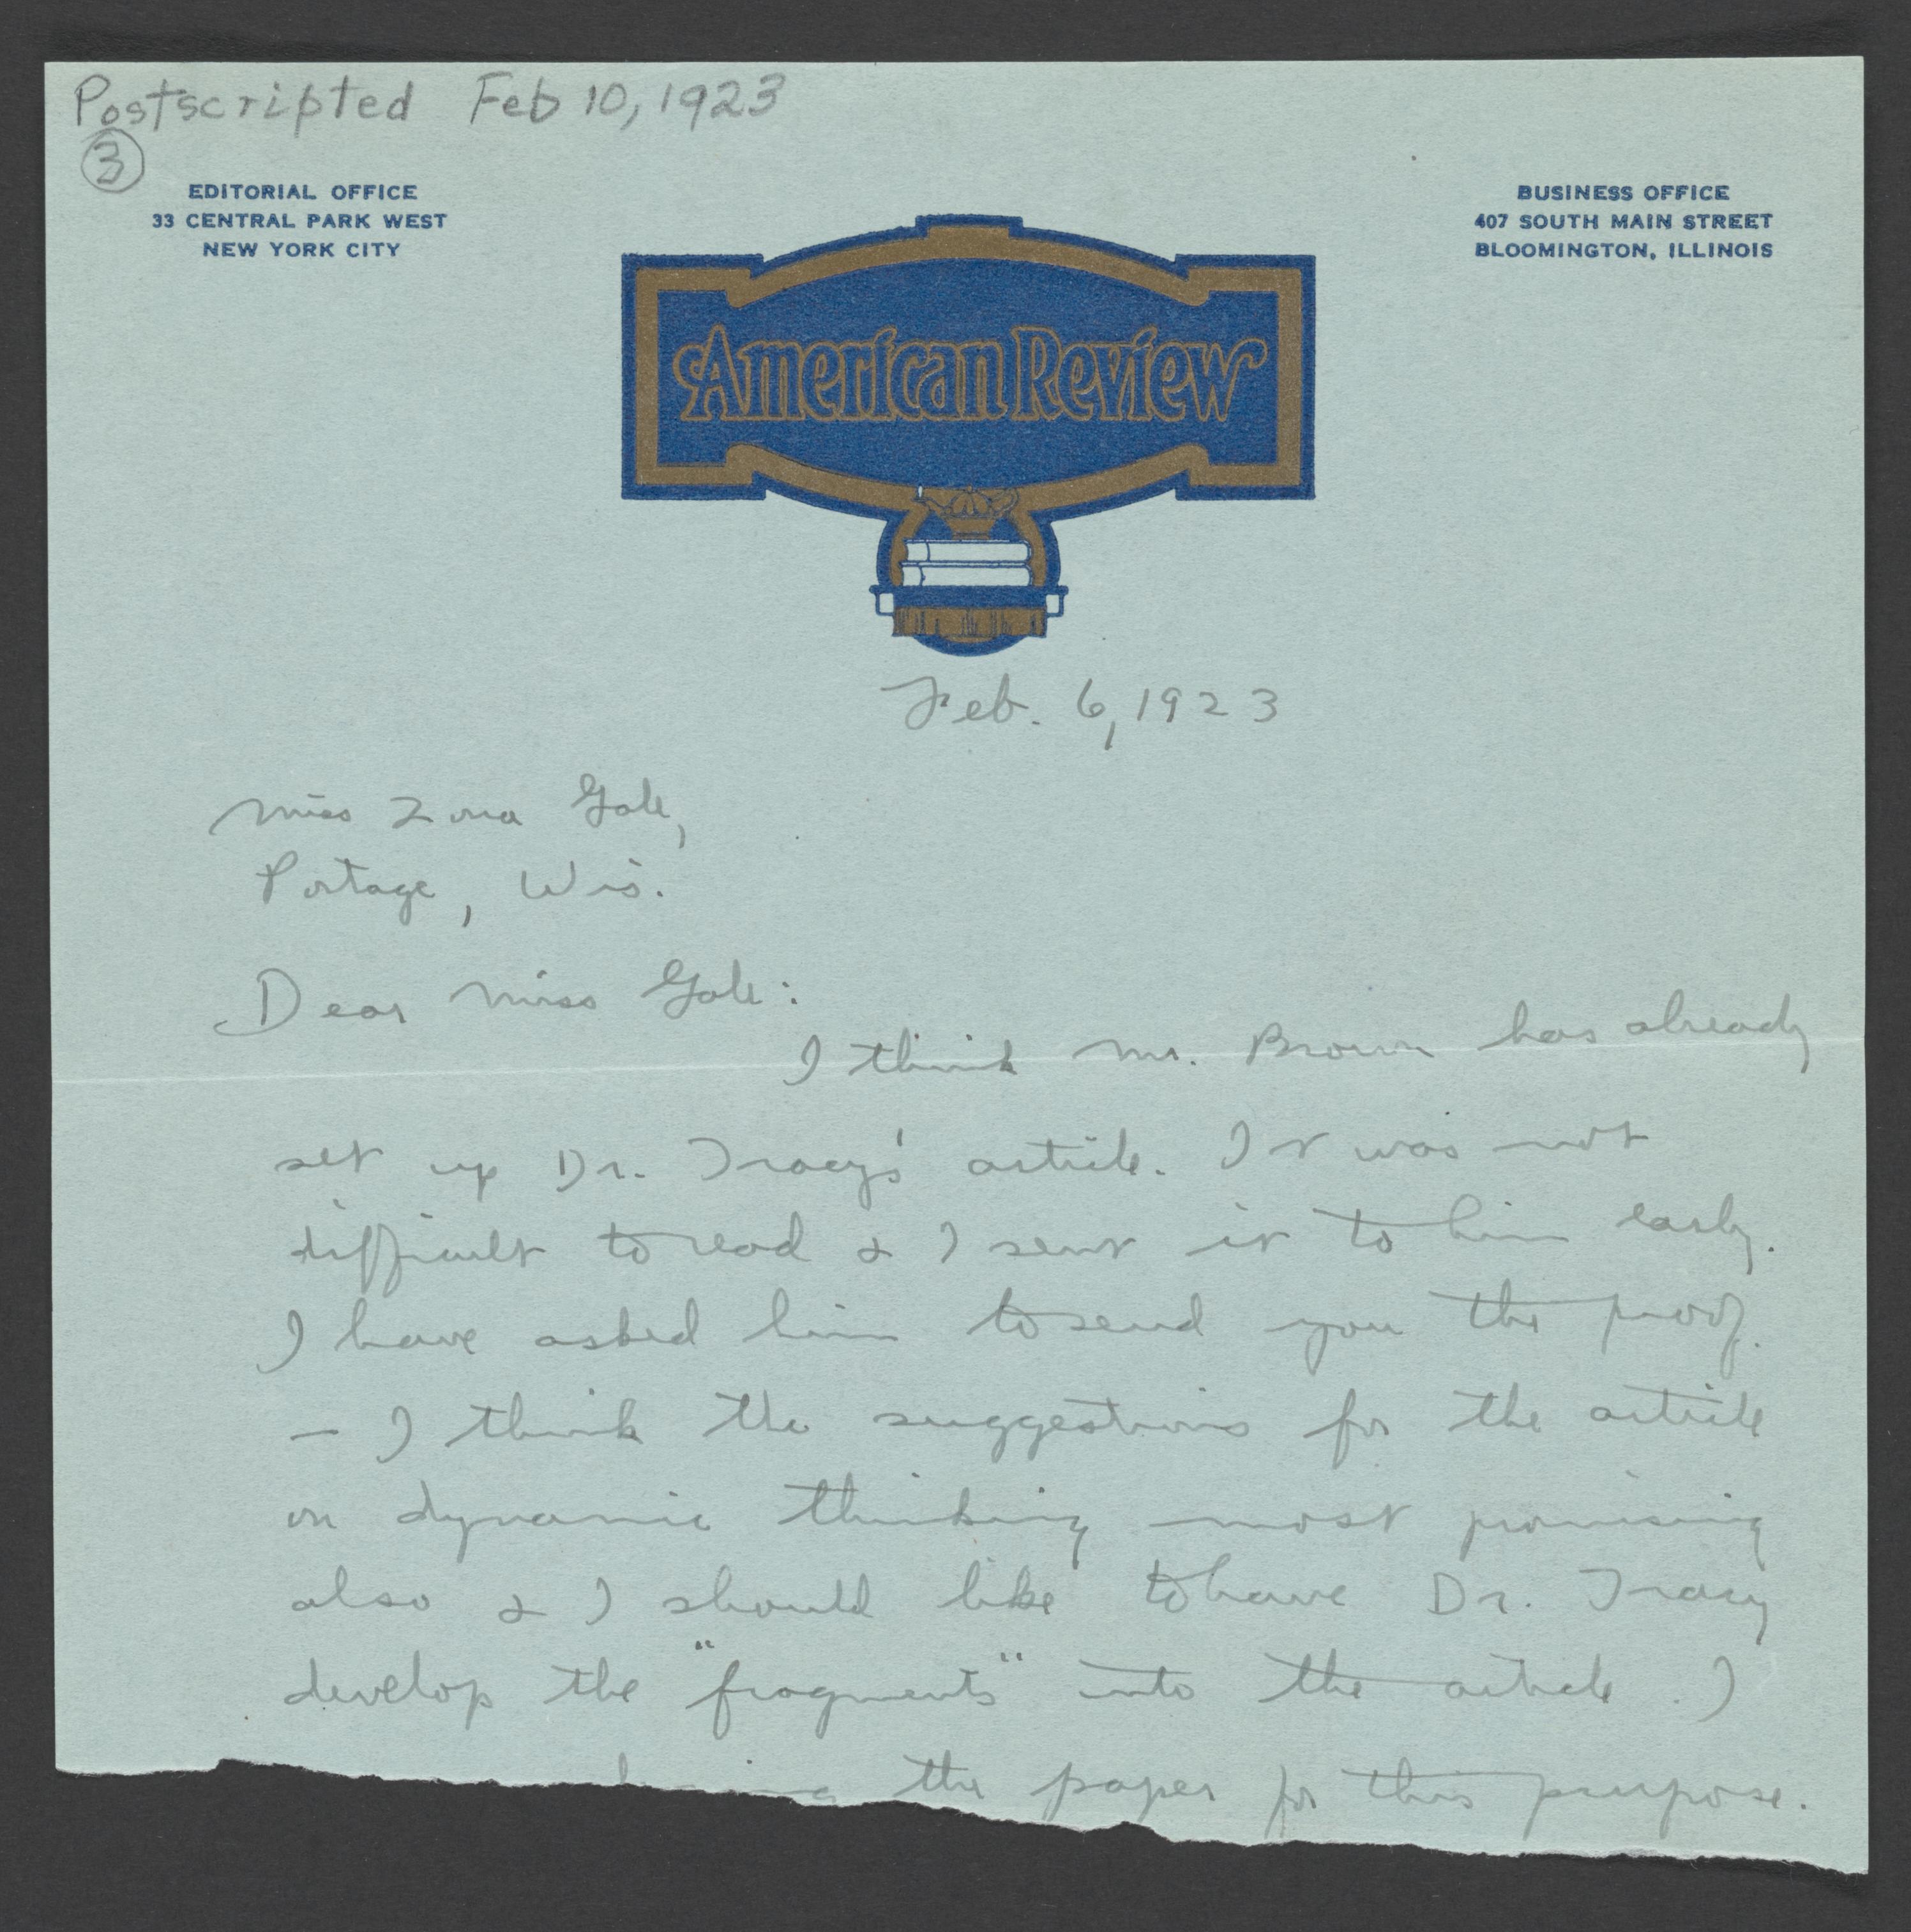 Postscripted Feb 10, 1923
3
EDITORIAL OFFICE
33 CENTRAL PARK WEST
NEW YORK CITY
BUSINESS OFFICE
407 SOUTH MAIN STREET
BLOOMINGTON, ILLINOIS
American Review
Feb. 6, 1923
Miss Zona Gale,
Portage, Wis.
Dear Miss Gale:
I think Mr. Brown has already
set up Dr. Tracy's article. It was not
difficult to read & I sent it to him early.
I have asked him to send you the proof.
— I think the suggestions for the article
on dynamic thinking most promising
also & I should like to have Dr. Tracy
develop the "fragments" into the article. I
the paper for this purpose.